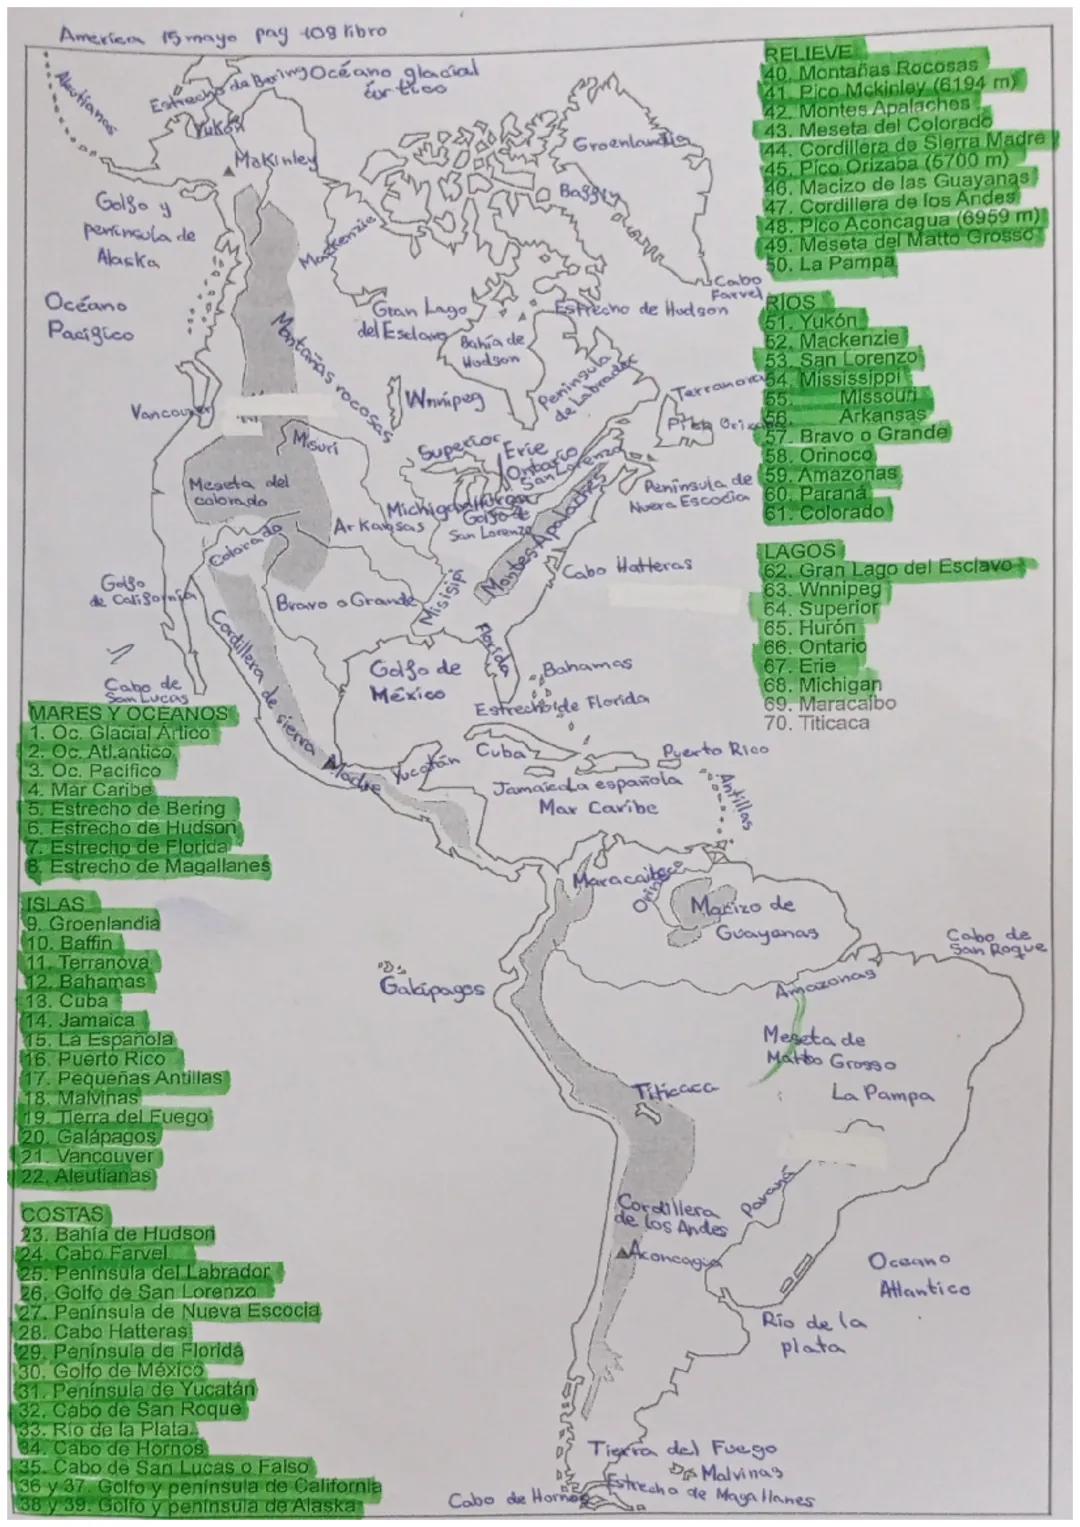 America 15 mayo pag 108 libro
Aleutianas
Estrecho de Bering
Océano glacial
ártico
Yukón
Makinley
Groenlandia
Baffin
Golfo y
península de
Alaska
Mackenzie
Océano
Pacífico
Gran Lago
del Esclavo
Cabo
Farvel
Estrecho de Hudson
Bahía de
Hudson
Montañas rocosas
Península
de Labrador
Winnipeg
Terranova
Vancouver
Pico Oriza
Misuri
Superior
Erie
Ontario
San Lorenzo
Meseta del
colorado
Michigan
Huron
Golfo de
San Lorenzo
Península de
Nueva Escocia
Arkansas
Montes Apalaches
Colorado
Cabo Hatteras
Golfo
de California
Bravo o Grande
Misisipi
Cordillera de sierra Madre
Florida
Golfo de
México
Bahamas
Cabo de
San Lucas
Estrecho de Florida
Yucatán
Cuba
Puerto Rico
Jamaica La española
Mar Caribe
Antillas
Maracaibo
Orinoco
Macizo de
Guayanas
Cabo de
San Roque
Galápagos
Amazonas
Meseta de
Matto Grosso
La Pampa
Titicaca
Cordillera
de los Andes
Paraná
Aconcagua
Oceano
Atlantico
Río de la
plata
Tierra del Fuego
Malvinas
Cabo de Hornos
Estrecho de Magallanes
RELIEVE
40. Montañas Rocosas
41. Pico Mckinley (6194 m)
42. Montes Apalaches
43. Meseta del Colorado
44. Cordillera de Sierra Madre
45. Pico Orizaba (5700 m)
46. Macizo de las Guayanas
47. Cordillera de los Andes
48. Pico Aconcagua (6959 m)
49. Meseta del Matto Grosso
50. La Pampa
RÍOS
51. Yukón
52. Mackenzie
53. San Lorenzo
54. Mississippi
55. Missouri
56. Arkansas
57. Bravo o Grande
58. Orinoco
59. Amazonas
60. Paraná
61. Colorado
LAGOS
62. Gran Lago del Esclavo
63. Wnnipeg
64. Superior
65. Hurón
66. Ontario
67. Erie
68. Michigan
69. Maracaibo
70. Titicaca
MARES Y OCEANOS
1. Oc. Glacial Ártico
2. Oc. Atl.antico
3. Oc. Pacifico
4. Mar Caribe
5. Estrecho de Bering
6. Estrecho de Hudson
7. Estrecho de Florida
8. Estrecho de Magallanes
ISLAS
9. Groenlandia
10. Baffin
11. Terranova
12. Bahamas
13. Cuba
14. Jamaica
15. La Española
16. Puerto Rico
17. Pequeñas Antillas
18. Malvinas
19. Tierra del Fuego
20. Galápagos
21. Vancouver
22. Aleutianas
COSTAS
23. Bahía de Hudson
24. Cabo Farvel
25. Península del Labrador
26. Golfo de San Lorenzo
27. Península de Nueva Escocia
28. Cabo Hatteras
29. Península de Florida
30. Golfo de México
31. Península de Yucatán
32. Cabo de San Roque
33. Río de la Plata
34. Cabo de Hornos
35. Cabo de San Lucas o Falso
36 y 37. Golfo y península de California
38 y 39. Golfo y península de Alaska